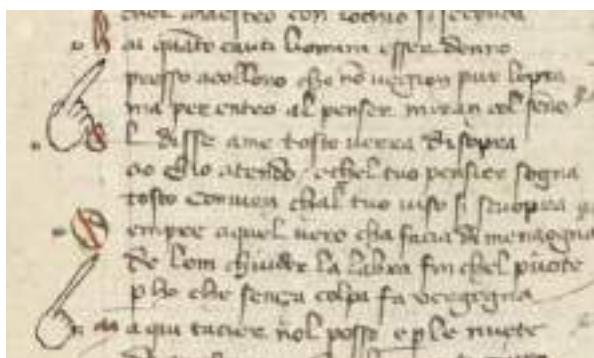 che l maestro con lochio si seconda
h ai quāto cauti li omini esser denno
presso acolloro che nō veggion pur lopra
ma per entro al penser miran col seño
e l disse ame tosto verra disopra
cio chio atendo echel tuo pensier sogna
tosto convien chal tuo viso si scuopra
S empre aquel vero cha facia di menzogna
de lom chiuder la labra fin chel puote
p ho che senza colpa fa vergogna
ma qui tacier nol posso e p le nuote